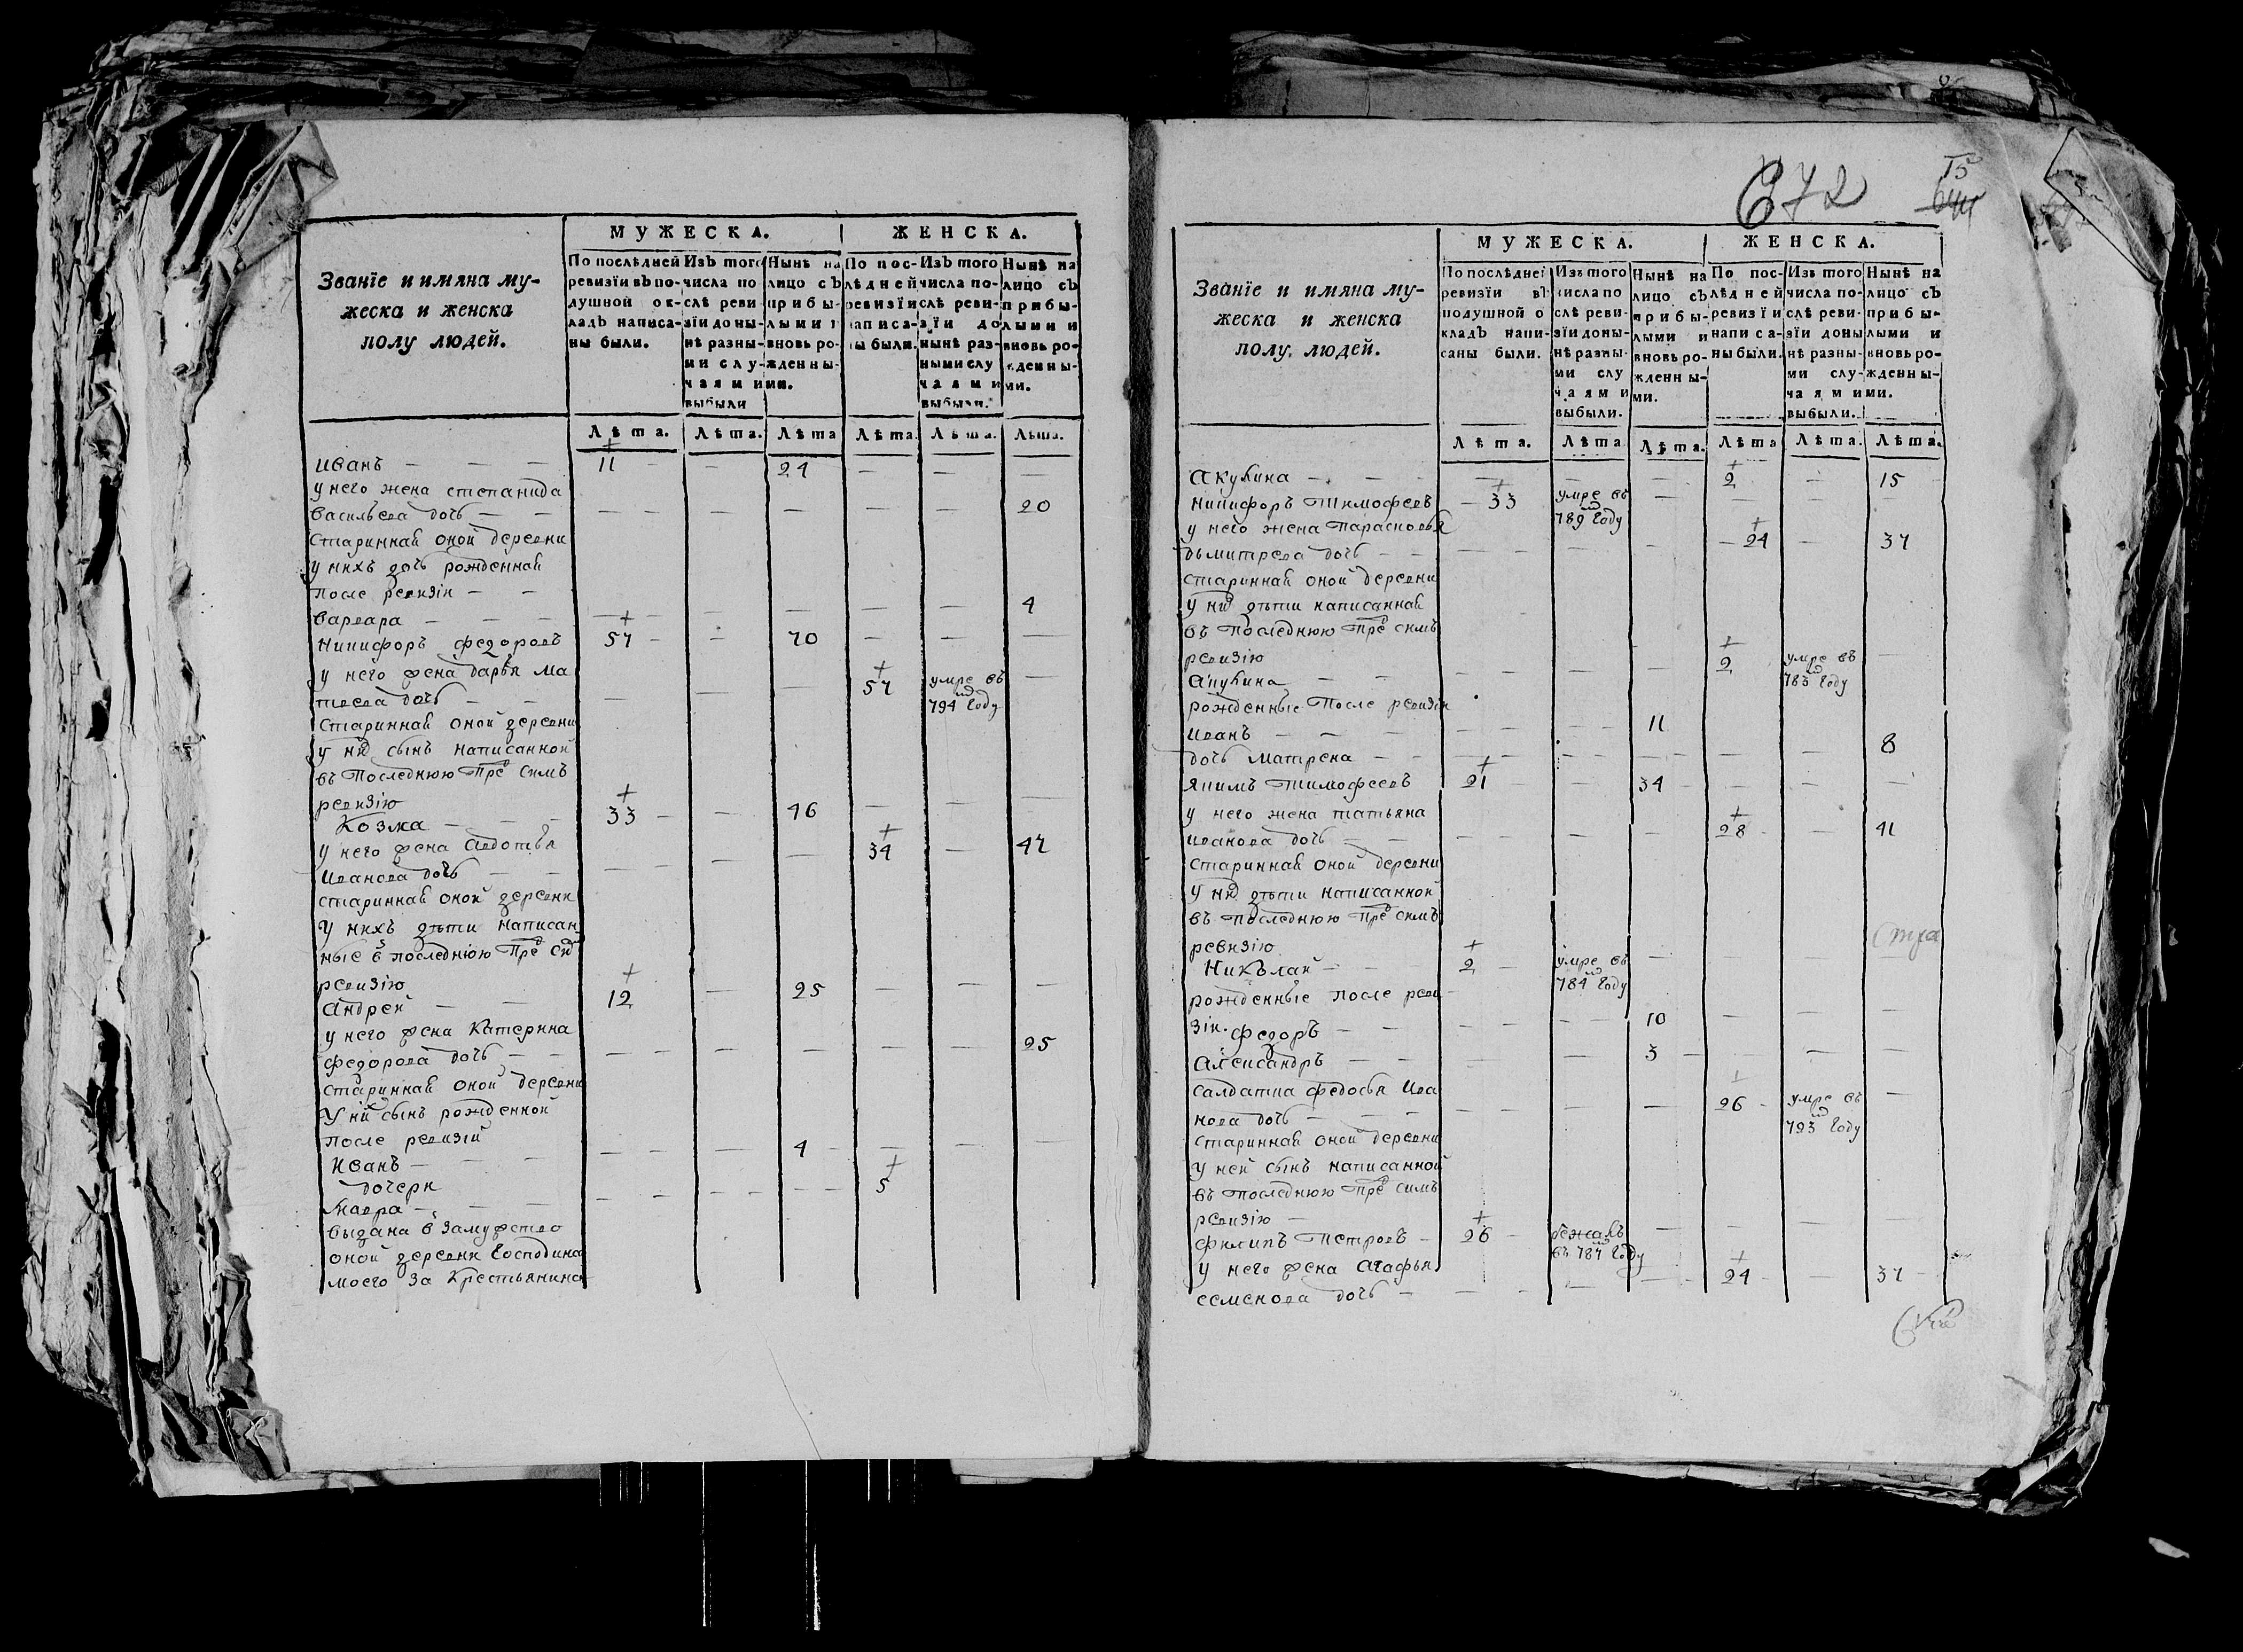 МУЖЕСКА. ЖЕНСКА.
Званїе и имяна му-
жеска и женска
полу людей.
По послѣдней ревизїи въ по-душной ок-ладъ написа-ны были.
Изъ того числа по слѣ реви-зїи доны-нѣ разны-ми слу-чаями выбыли
Нынѣ на лицо съ прибы-лыми и вновь ро-жденны-ми.
По пос-лѣдней ревизїи написа-ны были.
Изъ того числа по-слѣ реви-зїи до нынѣ раз-ными слу чаями выбыли.
Нынѣ на лицо съ прибы-лыми и вновь ро-жденны-ми.
Лѣта. Лѣта. Лѣта Лѣта. Лѣта. Лѣта.
Иванъ — 11 — 24
у него жена степанида
васильева дочь — 20
старинная оной деревни
у нихъ дочь рожденная
после ревизіи —
варвара — 4
Никифоръ федоровъ 57 — 70
у него жена дарья ма
твеева дочь — 57 умре въ 794 году
старинная оной деревни
у нихъ сынъ написанной
въ последнюю пред симъ
ревизію
Козма — 33 — 46
у него жена авдотья
иванова дочь — 34 — 47
старинная оной деревни
у нихъ дѣти написан
ные в последнюю пред сим
ревизію
андрей — 12 — 25
у него жена катерина
федорова дочь — 25
старинная оной деревни
У них сынъ рожденной
после ревизій
Иванъ — 4
дочери
мавра — 5
выдана в замужство
оной деревни господина
моего за крестьянина
672
15
МУЖЕСКА. ЖЕНСКА.
Званїе и имяна му-
жеска и женска
полу людей.
По послѣдней ревизїи въ подушной о кладъ напи-саны были.
Изъ того числа по слѣ реви-зїи доны-нѣ разны-ми слу чаями выбыли.
Нынѣ на лицо съ прибы-лыми и вновь ро-жденны-ми.
По пос-лѣдней ревизїи написа-ны были.
Изъ того числа по-слѣ реви-зїи доны нѣ разны-ми слу-чаями выбыли.
Нынѣ на лицо съ прибы-лыми и вновь ро-жденны-ми.
Лѣта. Лѣта Лѣта. Лѣта Лѣта. Лѣта.
акулина — 2 — 15
никифоръ тимофеевъ — 33 умре въ 789 году
у него жена парасковья
дьмитрева дочь — 24 — 37
старинная оной деревни
у них дѣти написанная
въ последнюю пред симъ
ревизію
акулина — 2 умре въ 783 году
рожденные После ревизіи
иванъ — 11
дочь матрена — 8
якимъ тимофеевъ 21 — 34
у него жена татьяна
иванова дочь — 28 — 41
старинная оной деревни
у них дѣти написанной
въ последнюю пред симъ
ревизію
Николай — 2 умре въ 784 году
рожденные после реви
зіи. федоръ — 10
александръ — 3
салдатка федосья ива
нова дочь — 26 умре въ 793 году
старинная оной деревни
у ней сынъ написанной
въ последнюю пред симъ
ревизію —
филипъ петровъ — 26 бежалъ въ 787 году
у него жена агафья
семенова дочь — 24 — 37